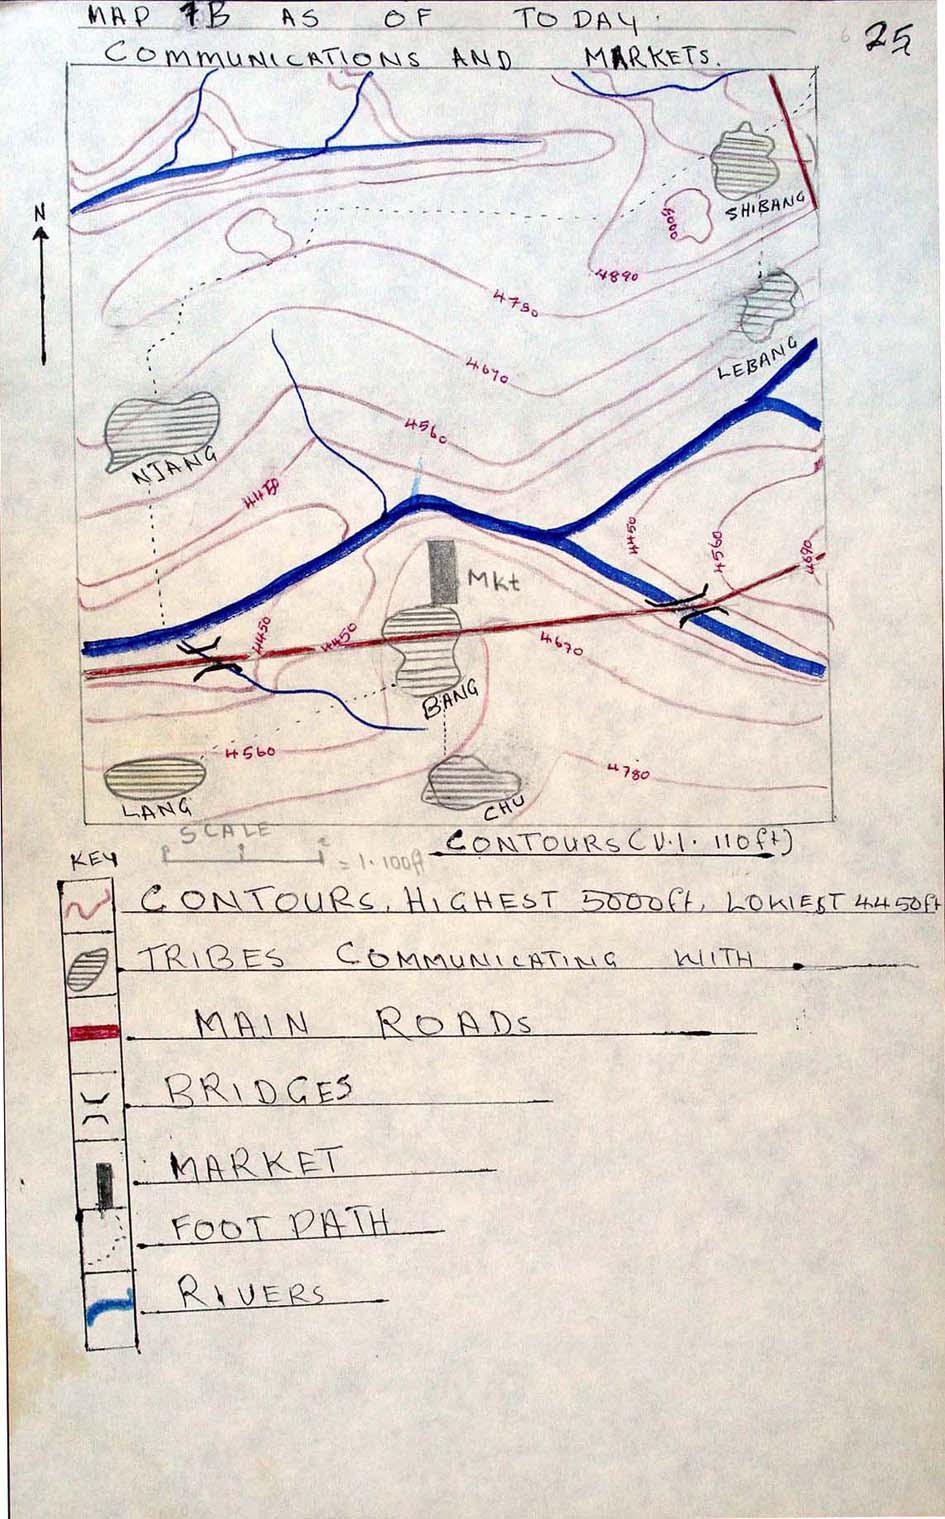 MAP 7B AS OF TODAY.
25
COMMUNICATIONS AND MARKETS.
N
SHIBANG
5000
4890
4780
LEBANG
4670
4560
NJANG
4450
4450
4560
4690
Mkt
4450
4450
4670
BANG
4560
4780
LANG
CHU
SCALE
= 1.100ft
CONTOURS (V.I. 110ft)
KEY
CONTOURS, HIGHEST 5000ft, LOWEST 4450ft
TRIBES COMMUNICATING WITH
MAIN ROADS
BRIDGES
MARKET
FOOT PATH
RIVERS